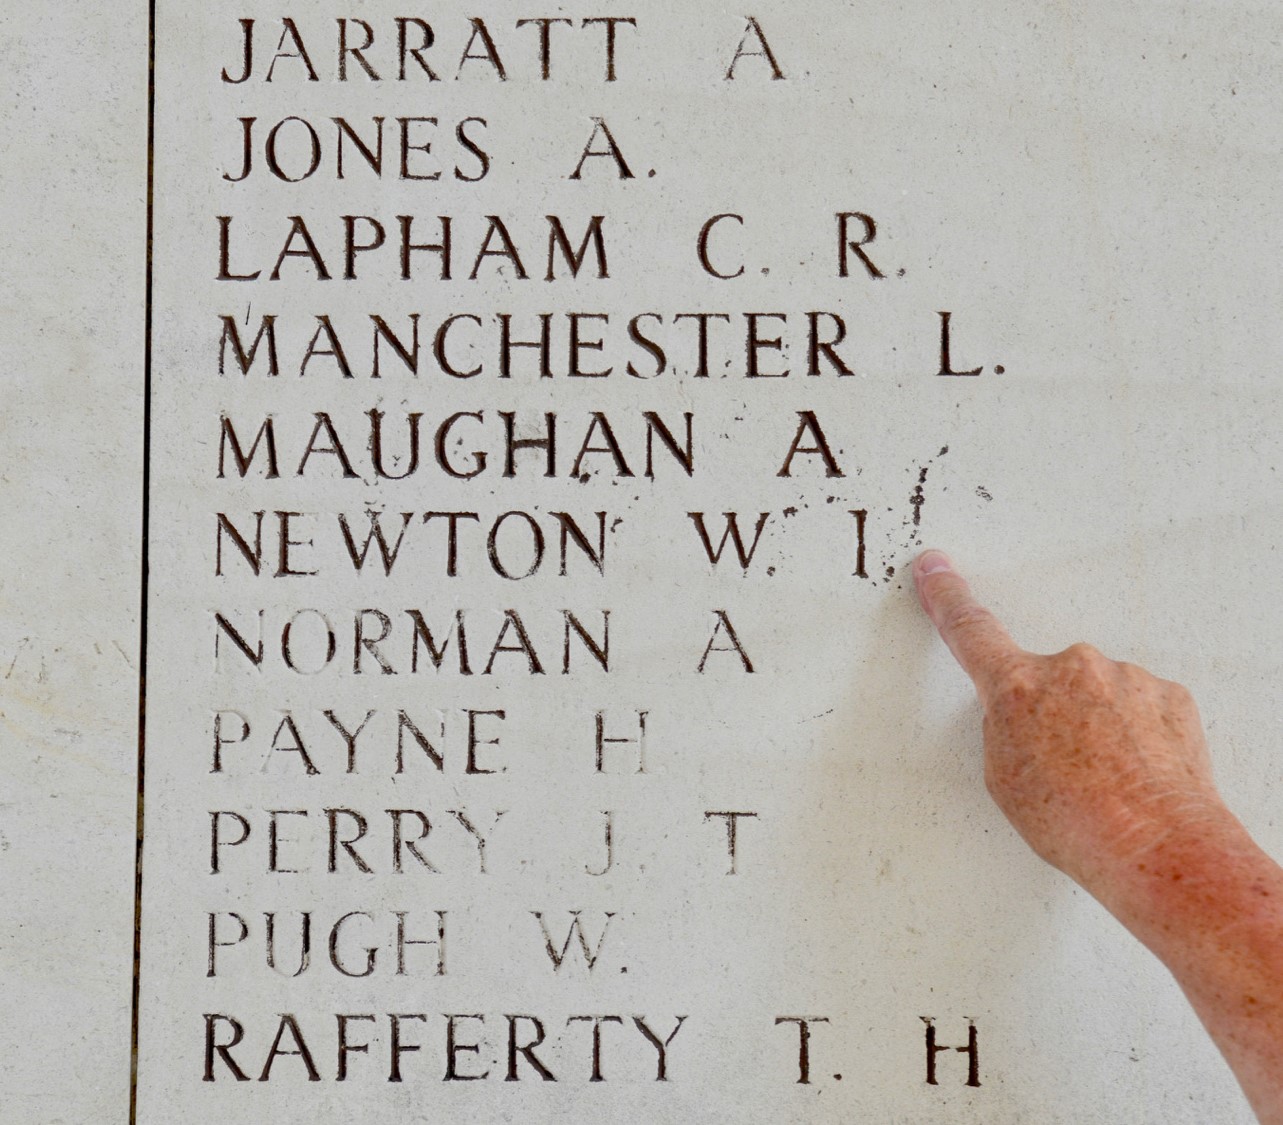 JARRATT A
JONES A.
LAPHAM C. R.
MANCHESTER L.
MAUGHAN A
NEWTON W. I.
NORMAN A
PAYNE H
PERRY J T
PUGH W.
RAFFERTY T. H